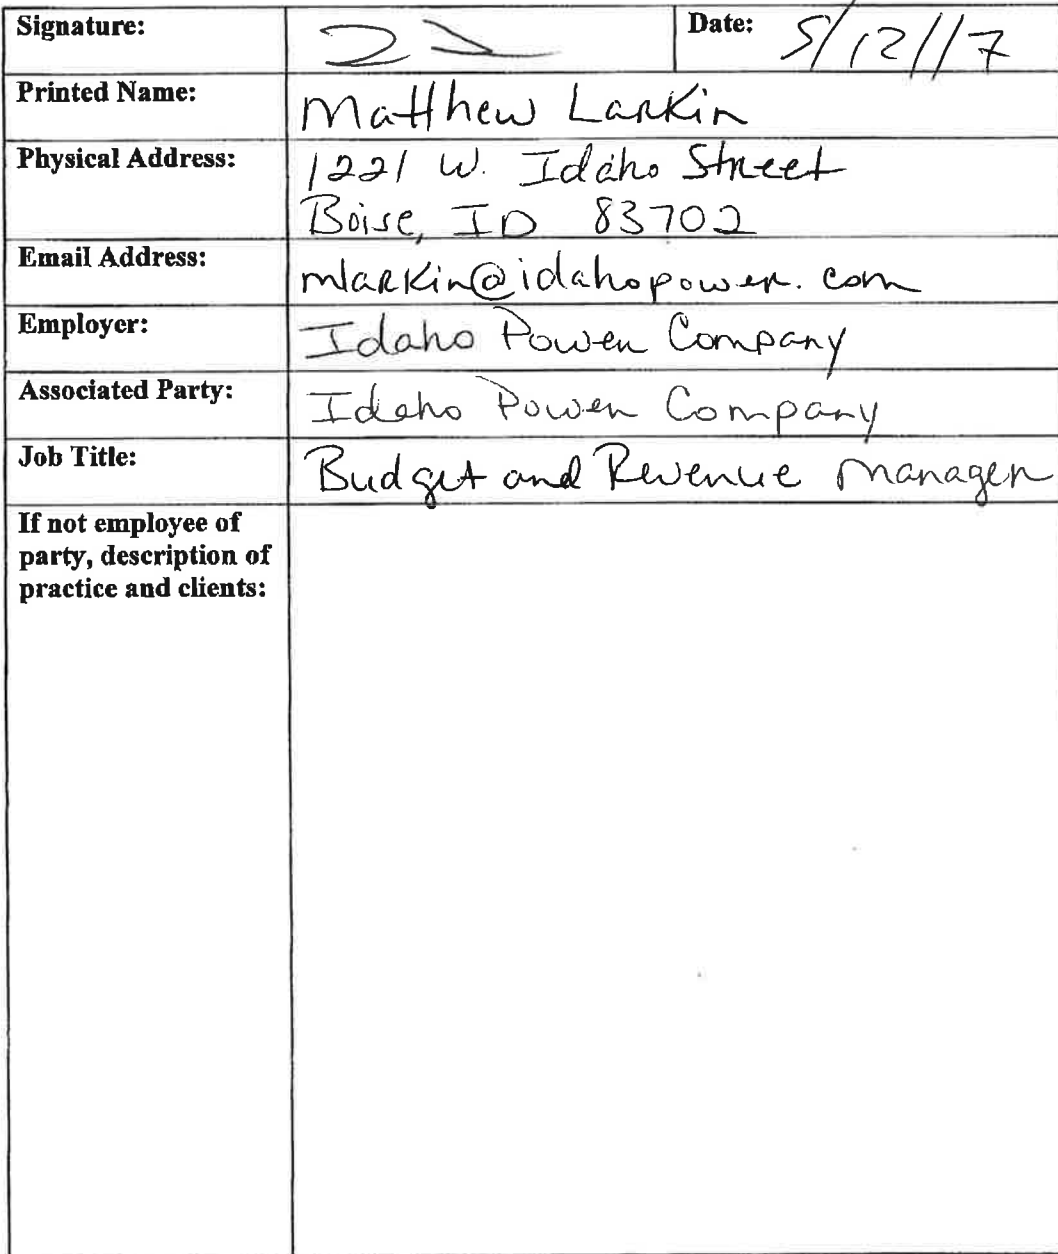 Signature: Date: 5/12/17
Printed Name: Matthew Larkin
Physical Address: 1221 W. Idaho Street
Boise, ID 83702
Email Address: mlarkin@idahopower.com
Employer: Idaho Power Company
Associated Party: Idaho Power Company
Job Title: Budget and Revenue Manager
If not employee of
party, description of
practice and clients: